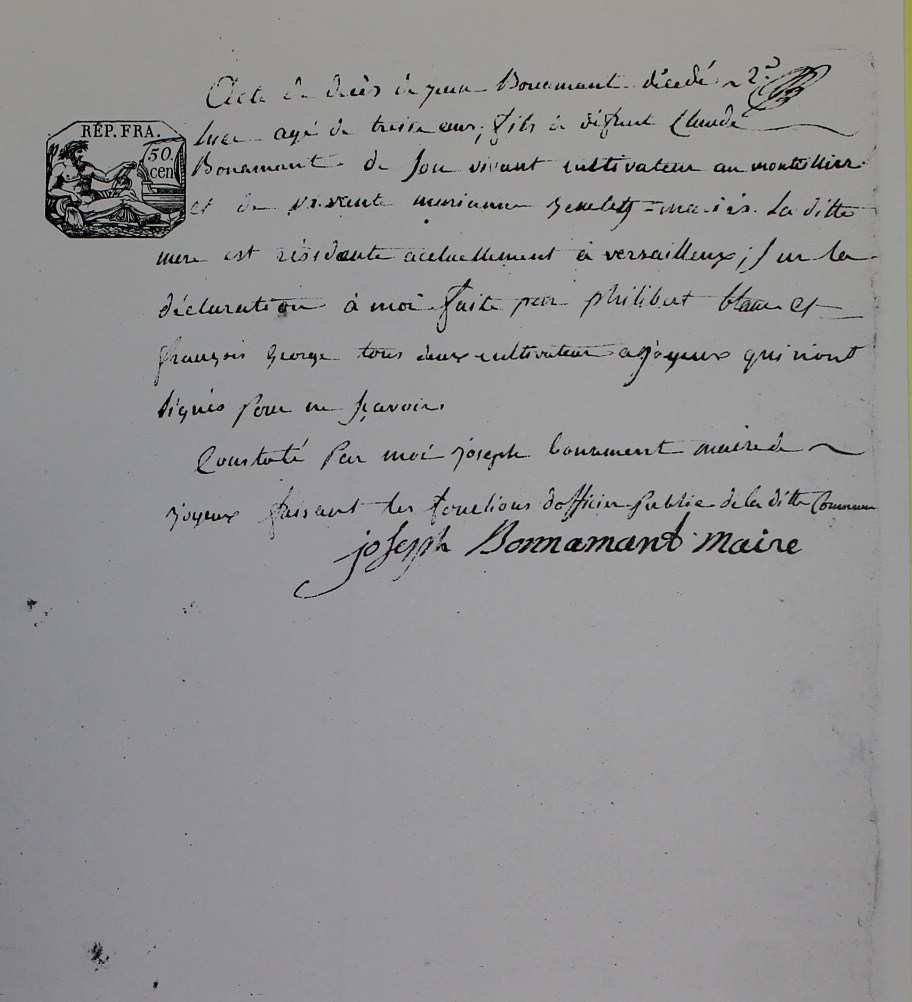 Acte de décès de jean Bonamant décédé 2.d
agé de treise ans, fils de défunt Claude
RÉP. FRA.
50.
cen
Bonamant de son vivant cultivateur au montellier
et de vivante marianne La ditte
mere est résidante actuellement à versailleux; sur la
déclaration à moi faite par philibert et
françois george tous deux cultivateur a joyeux qui n'ont
signés pour ne sçavoir.
Constaté par moi joseph bonament maire de
joyeux faisant les fonctions d'officier public de la ditte Commune
joseph Bonnamant maire